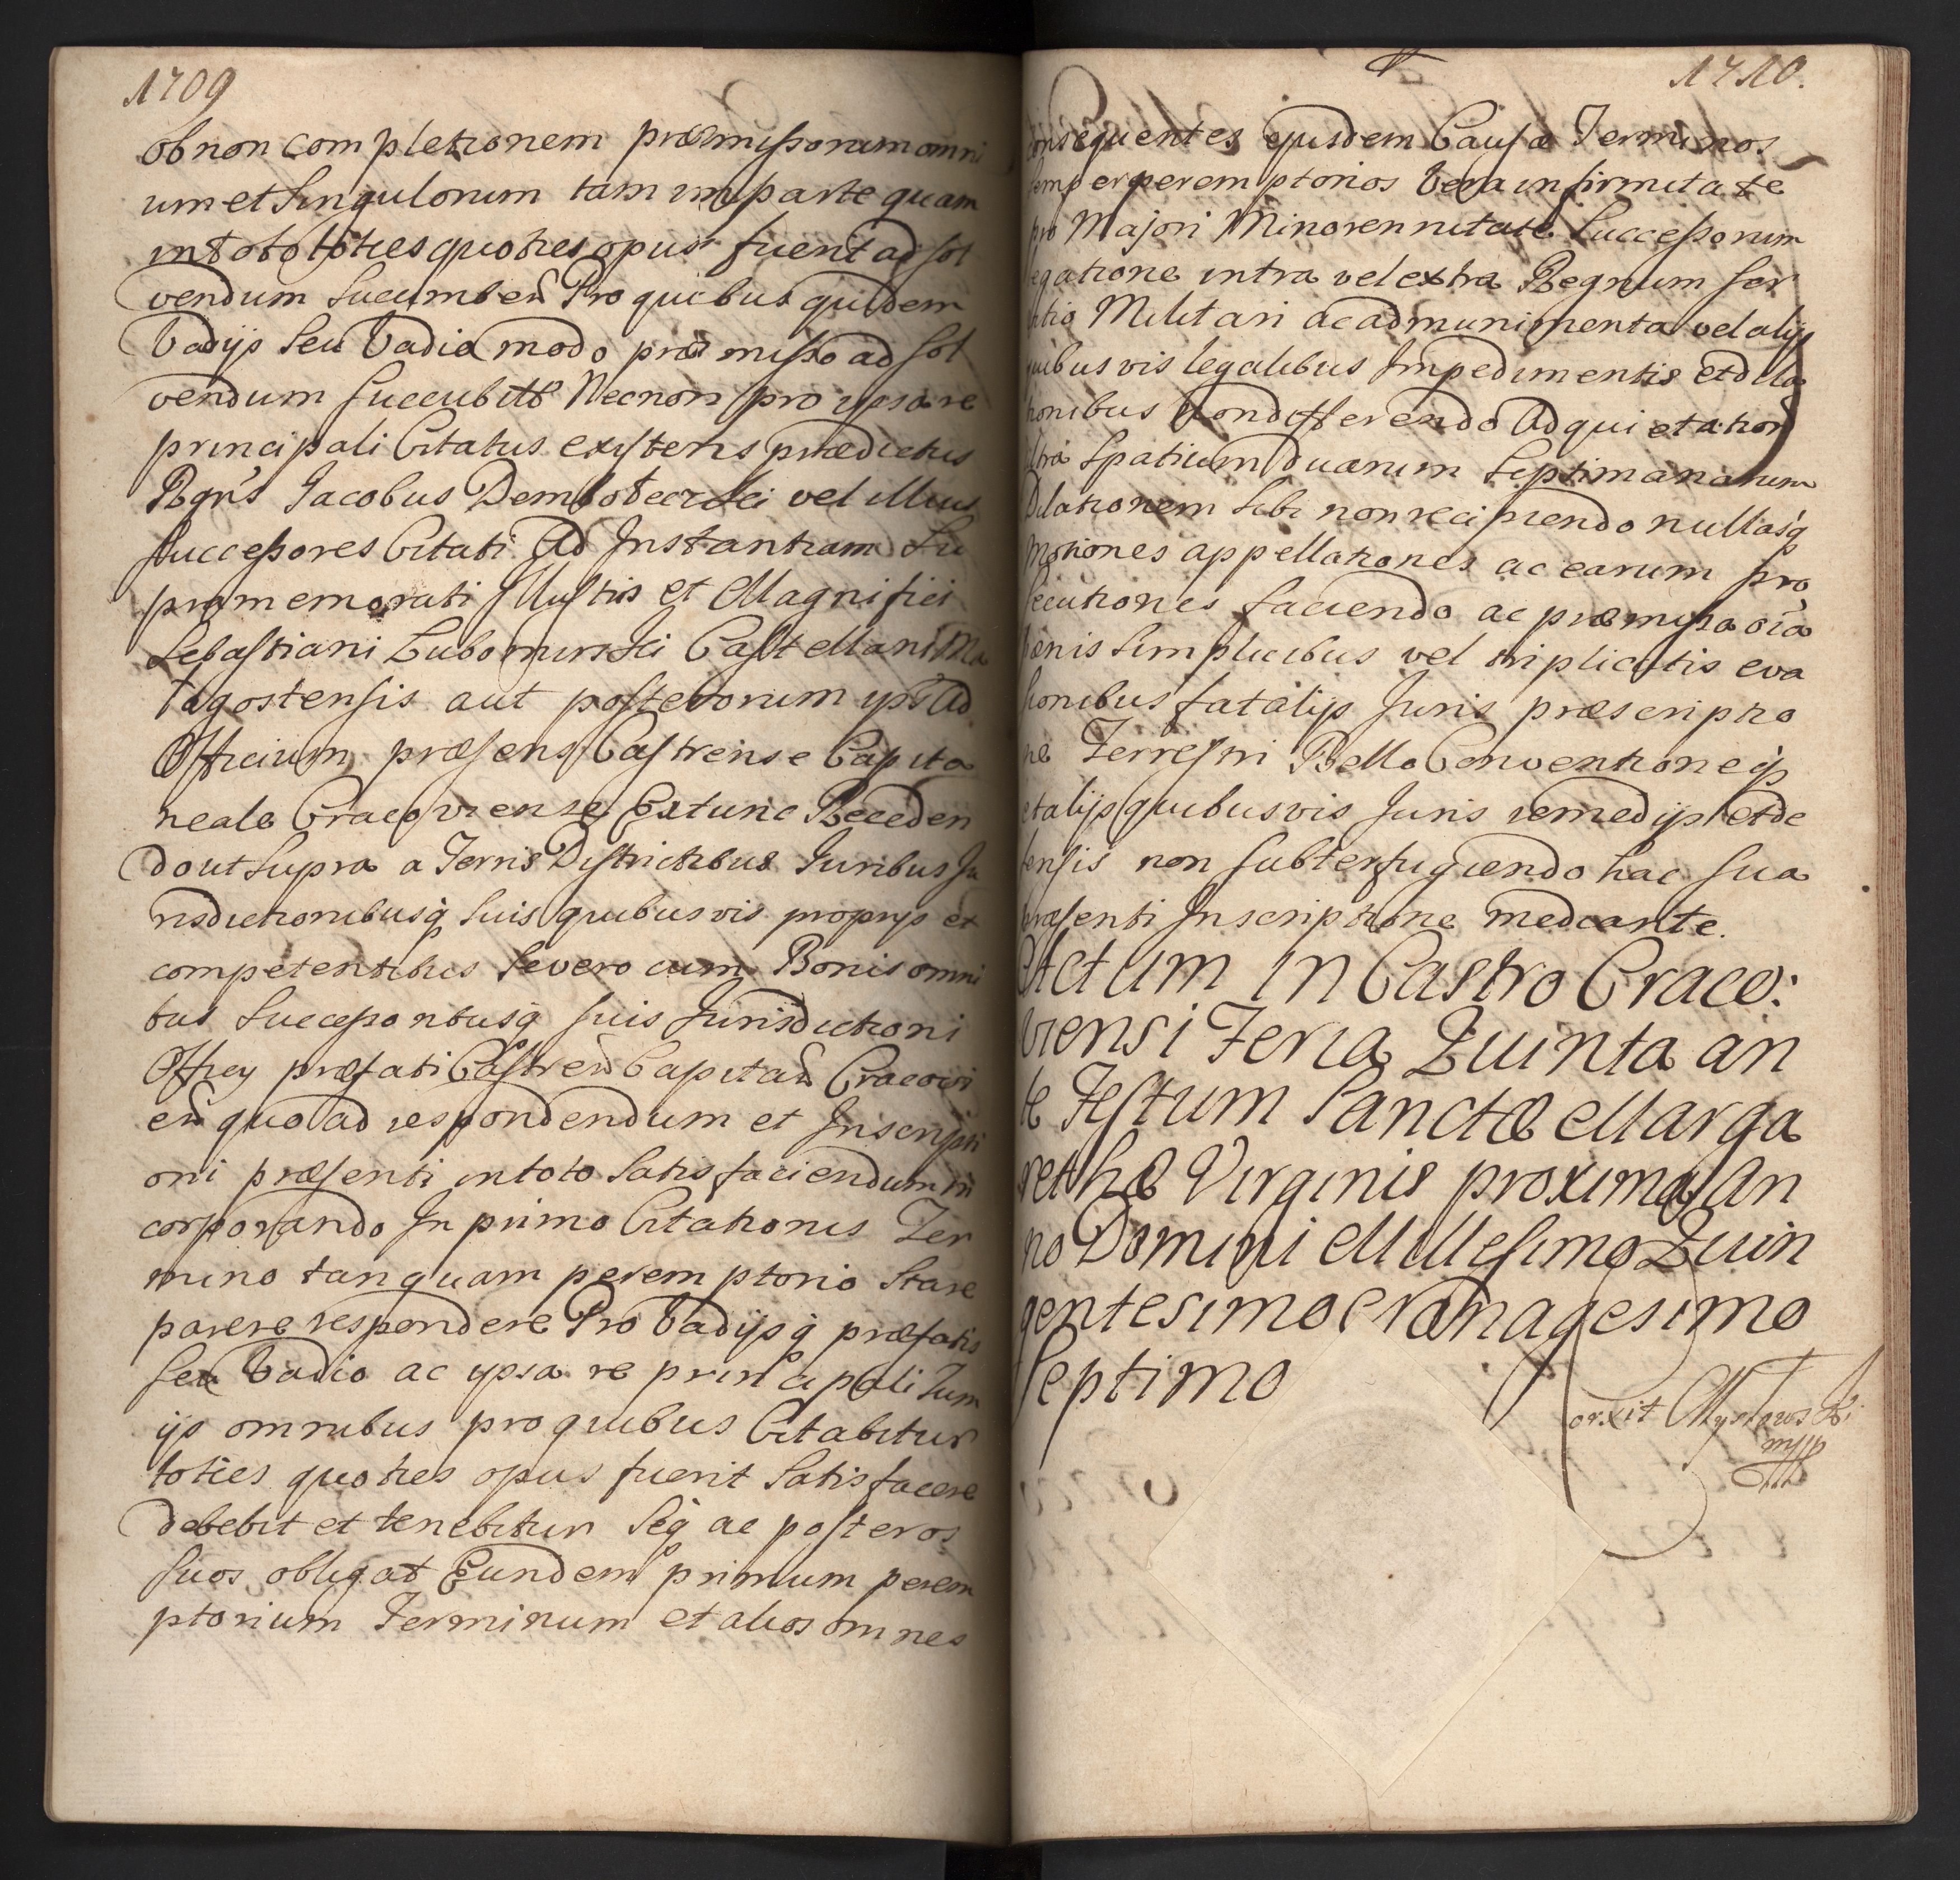 1709
ob non completionem præmissorum omni
um et Singulorum tam in parte quam
in toto toties quoties opus fuerit ad sol
vendum Succumbeñ Pro quibus quidem
Vadijs Seu Vadio modo præmisso ad sol
vendum succubitis Necnon pro ipsa re
principali Citatus existens prædictus
Jacobus Dembotecrski vel illius
Successores Citati Ad Instantiam Su
pramemorati Illustris et Magnifici
Sebastiani Lubomirski Castellani Ma
logostensis aut posterorum ipsi Ad
Officium præsens Castrense Capita
neale Cracoviense Extunc Receden
do ut Supra a Terris Districtibus Iuribus Ju
risdictionibusq Suis quibusvis proprijs et
competentibus Se vero cum Bonis omni
bus Successoribusq suis Jurisdictioni
Officy præfati Castreñ Capitañ Cracovi
eñ quo ad respondendum et Inscripti
oni præsenti in toto Satisfaciendum in
corporando In primo Citationis Ter
mino tanquam peremptorio Stare
parere respondere Pro Vadijsq præfatis
seu Vadio ac ipsa re principali Tum
ijs omnibus pro quibus Citabitur
toties quoties opus fuerit Satisfacere
debebit et tenebitur Seq ac posteros
suos obligat Eundem primum perem
ptorium Terminum et alios omnes
1710.
consequentes ejusdem Causæ Terminos
semper peremptorios Vera infirmitate
pro Majori Minorennitate Successorum
legatione intra vel extra Regnum ser
vitio Militari ac ad munimenta vel alijs
quibusvis legalibus Impedimentis et dila
tionibus non differendo Ad quietation
ultra Spatium duarum Septimanarum
Dilationem Sibi non recipiendo nullasq
Motiones appellationes ac earum pro
secutiones faciendo ac præmissa oĩa
pænis Simplicibus vel triplicatis eva
sionibus fatalijs Juris præscriptio
ne Terrestri Bello Conventioneq
et alijs quibusvis Juris remedijs et de
fensis non subterfugiendo hac sua
præsenti Inscriptione mediante.
Actum in Castro Craco:
viensi Feria Quinta an
te Festum Sanctæ Marga
rethæ Virginis proxima An
no Domini Millesimo Quin
gentesimo Nonagesimo
Septimo